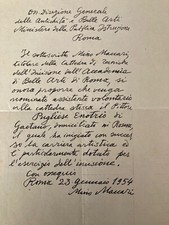 On. Direzione Generale
delle Antichità e Belle Arti
Ministero della Pubblica Istruzione
Roma
Il sottoscritto Mino Maccari,
titolare della Cattedra di Tecniche
dell'Incisione dell'Accademia
di Belle Arti di Roma, si
onora proporre che venga
nominato assistente volontario
alla cattedra stessa il Pittore
Pugliese Enotrio di
Gaetano, domiciliato in Roma,
il quale ha iniziato con succes
so la carriera artistica ed
è particolarmente dotato per
l'esercizio dell'incisione.
Con ossequi
Roma 23 gennaio 1954
Mino Maccari